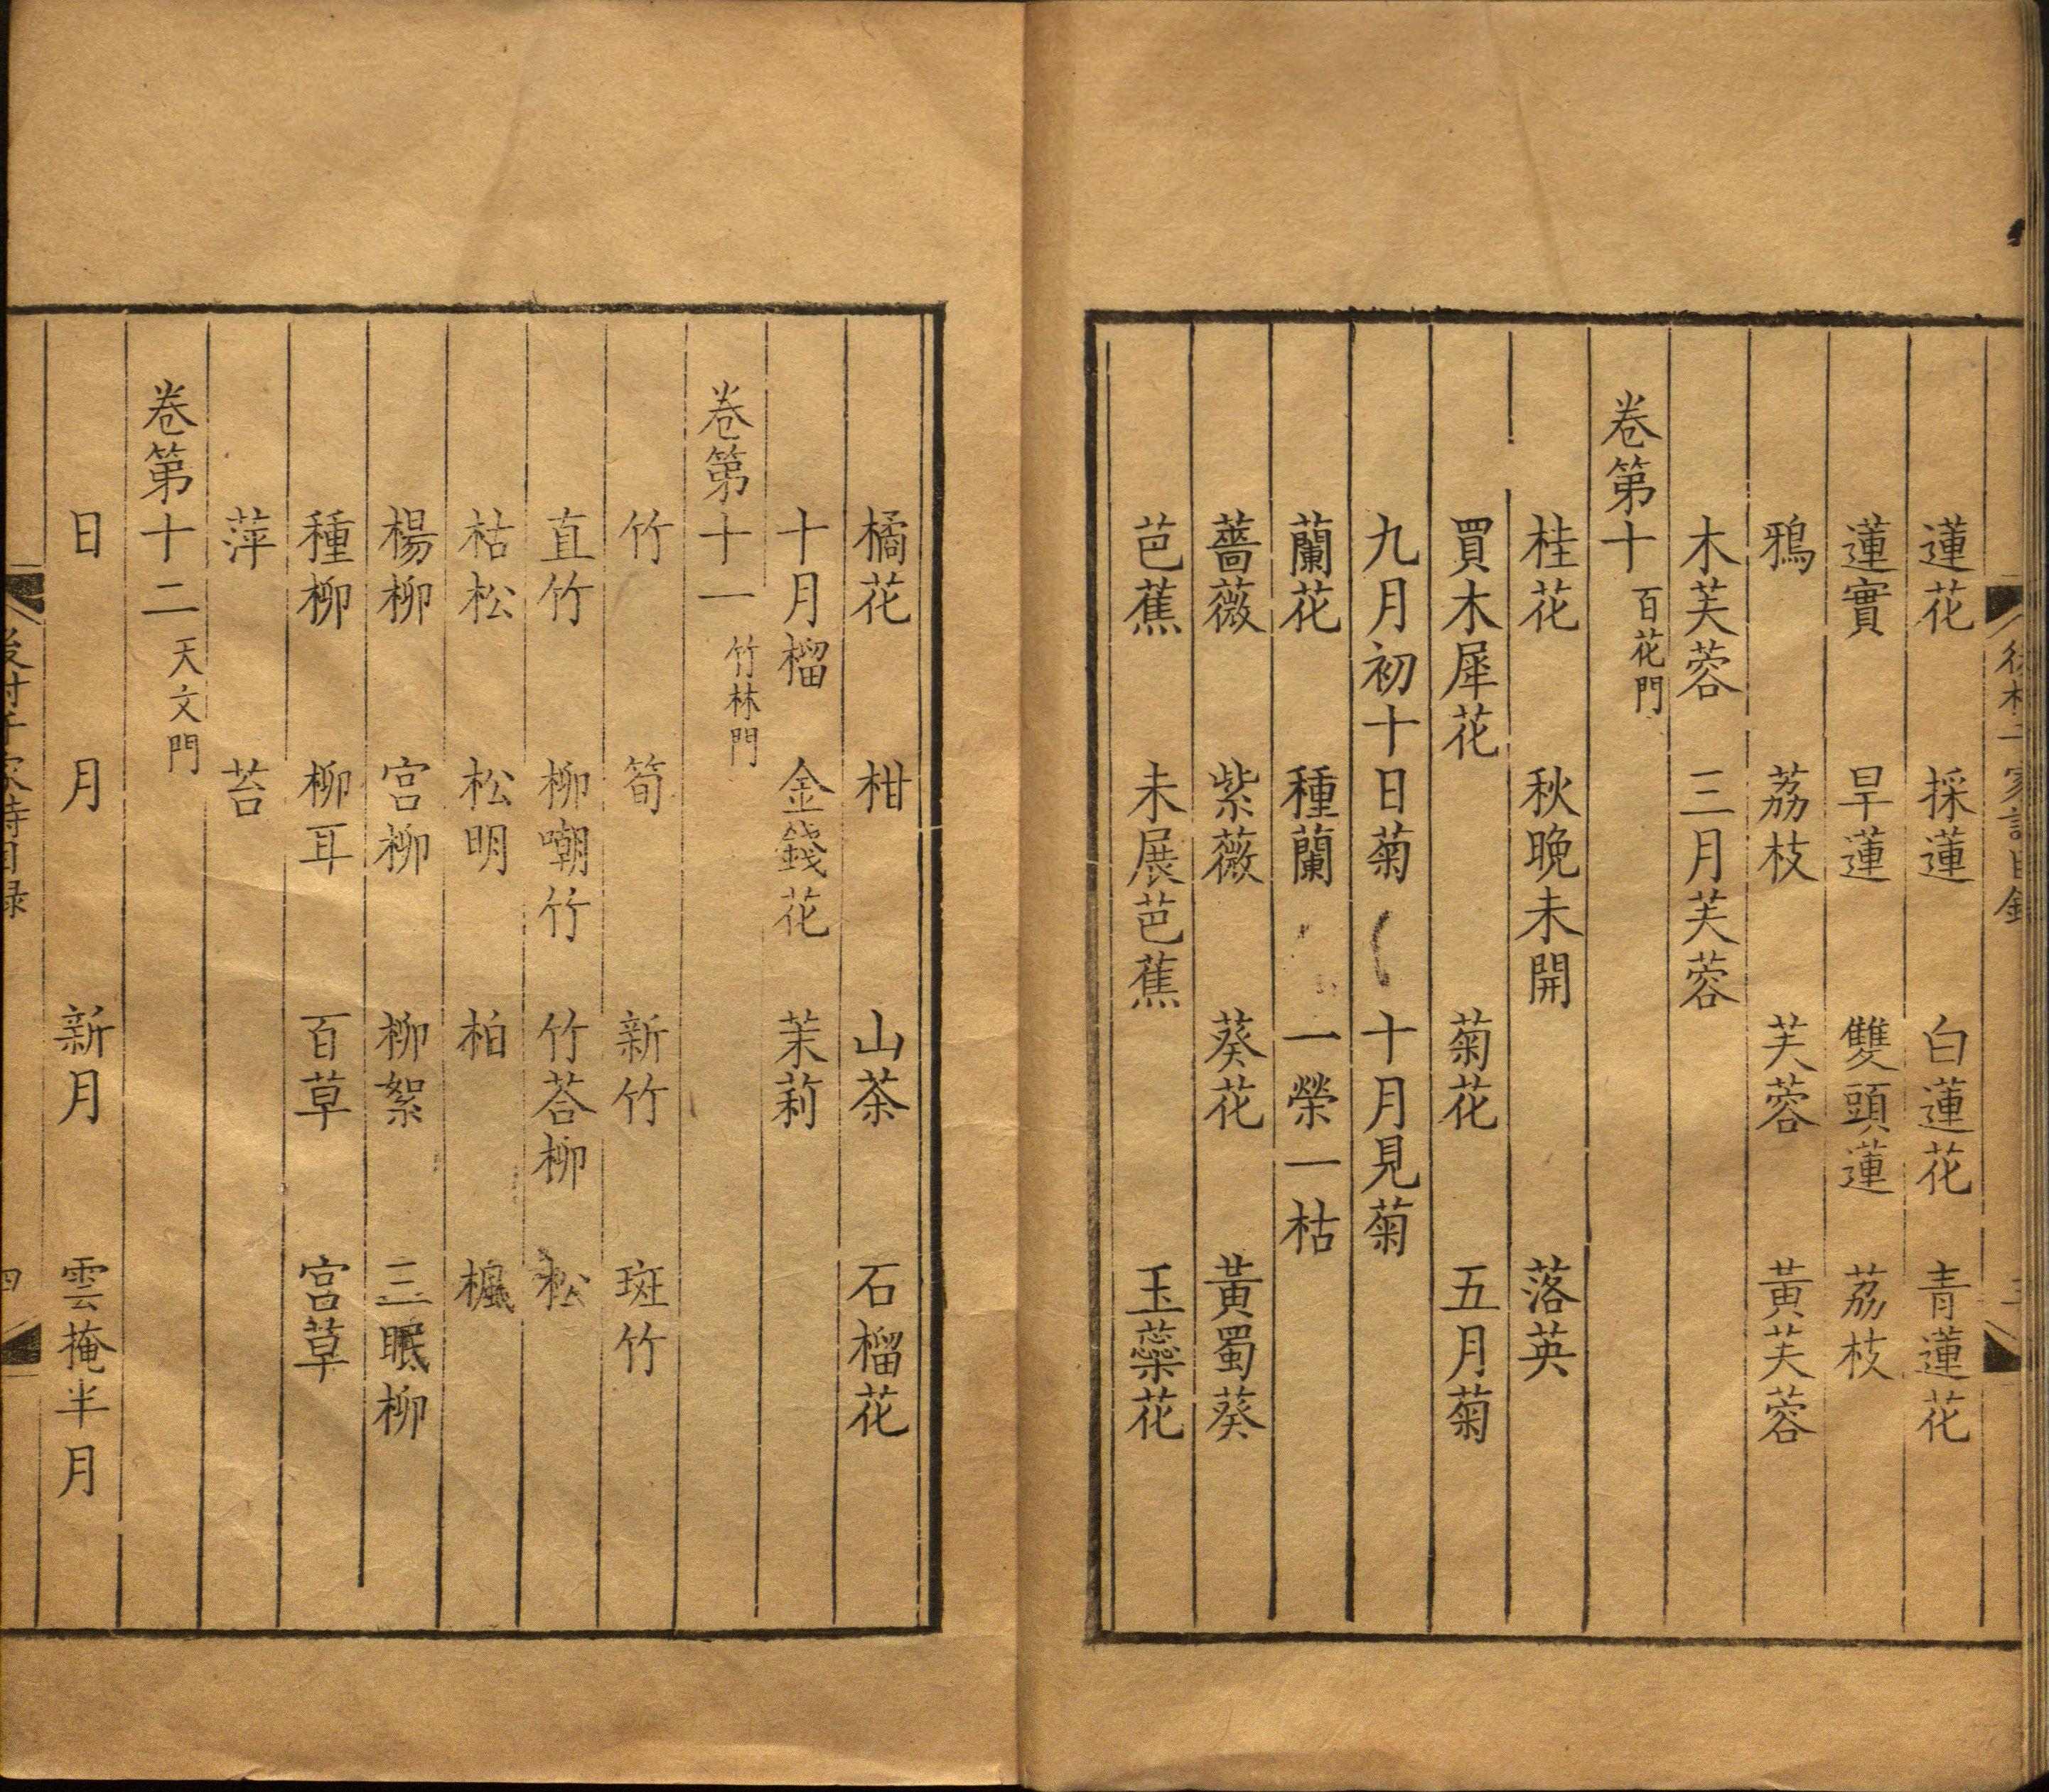 蓮花 採蓮 白蓮花 青蓮花
蓮實 旱蓮 雙頭蓮 荔枝
鴉 荔枝 芙蓉 黃芙蓉
木芙蓉 三月芙蓉
卷第十 百花門
桂花 秋晚未開 落英
買木犀花 菊花 五月菊
九月初十日菊 十月見菊
蘭花 種蘭 一榮一枯
薔薇 紫薇 葵花 黃蜀葵
芭蕉 未展芭蕉 玉蘂花
橘花 柑 山茶 石榴花
十月榴 金錢花 茉莉
卷第十一 竹林門
竹 筍 新竹 斑竹
直竹 柳嘲竹 竹荅柳 松
枯松 松明 柏 楓
楊柳 宮柳 柳絮 三眠柳
種柳 柳耳 百草 宮草
萍 苔
卷第十二 天文門
日 月 新月 雲掩半月